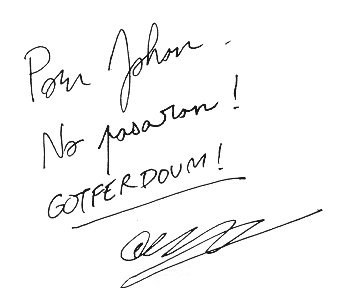 Pour Johan.
No pasaran!
GOTFERDOUM!